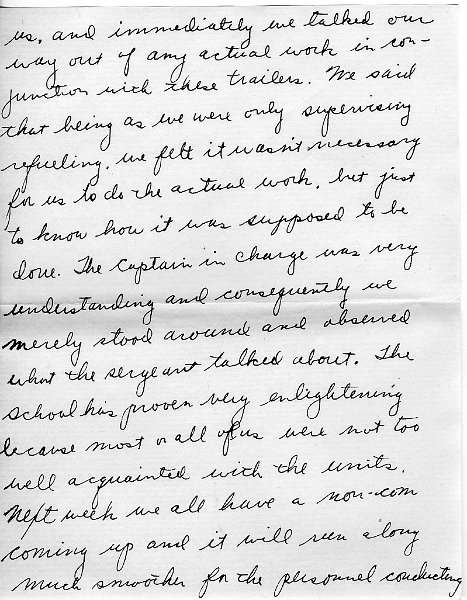 us, and immediately we talked our
way out of any actual work in con-
junction with these trailers. We said
that being as we were only supervising
refueling, we felt it wasn't necessary
for us to do the actual work, but just
to know how it was supposed to be
done. The Captain in charge was very
understanding and consequently we
merely stood around and observed
what the sergeant talked about. The
school has proven very enlightening
because most or all of us were not too
well acquainted with the units.
Next week we all have a non-com
coming up and it will run along
much smoother for the personnel conducting